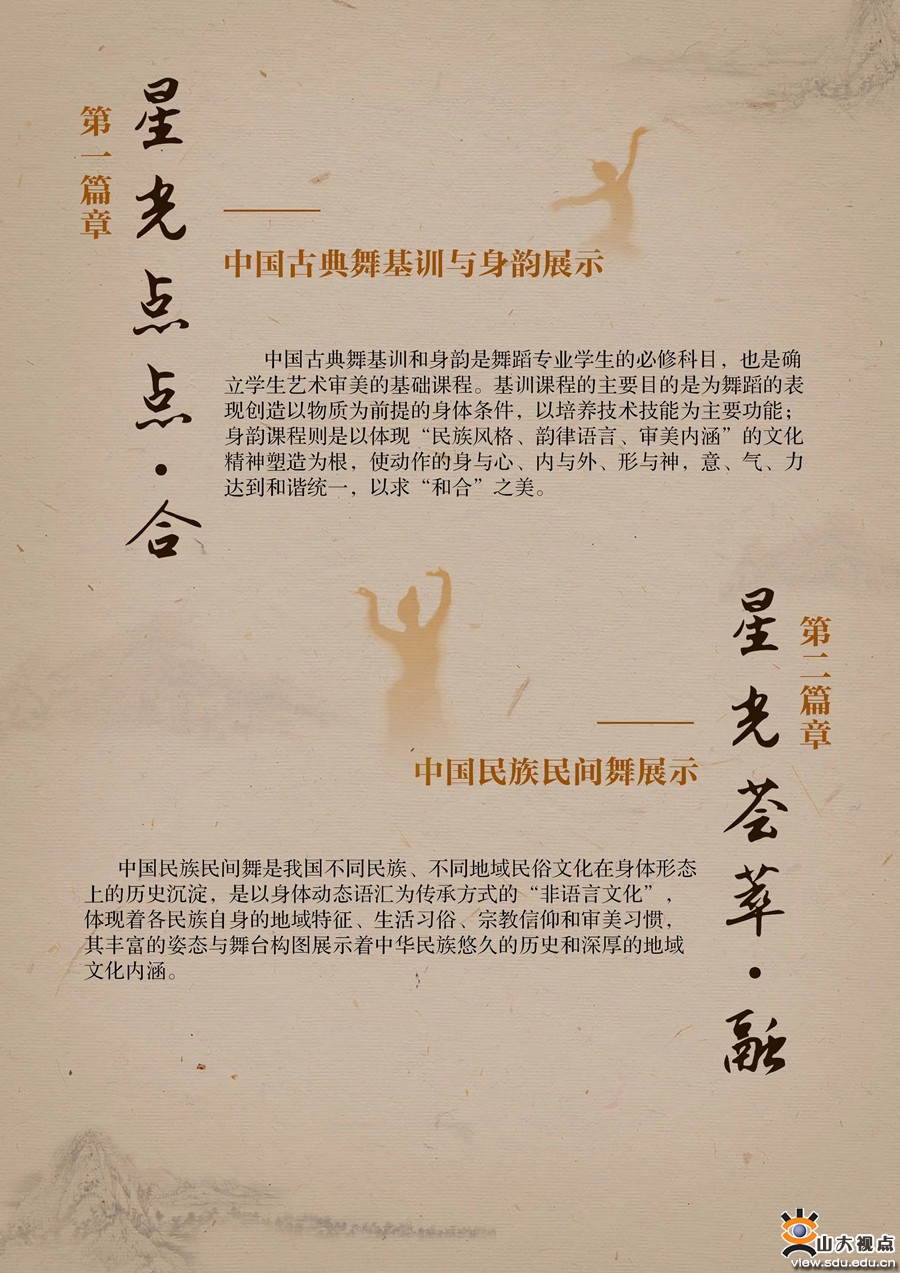 第一篇章
星光点点·合
中国古典舞基训与身韵展示
中国古典舞基训和身韵是舞蹈专业学生的必修科目，也是确
立学生艺术审美的基础课程。基训课程的主要目的是为舞蹈的表
现创造以物质为前提的身体条件，以培养技术技能为主要功能；
身韵课程则是以体现“民族风格、韵律语言、审美内涵”的文化
精神塑造为根，使动作的身与心、内与外、形与神，意、气、力
达到和谐统一，以求“和合”之美。
第二篇章
星光荟萃·融
中国民族民间舞展示
中国民族民间舞是我国不同民族、不同地域民俗文化在身体形态
上的历史沉淀，是以身体动态语汇为传承方式的“非语言文化”，
体现着各民族自身的地域特征、生活习俗、宗教信仰和审美习惯，
其丰富的姿态与舞台构图展示着中华民族悠久的历史和深厚的地域
文化内涵。
山大视点
view.sdu.edu.cn